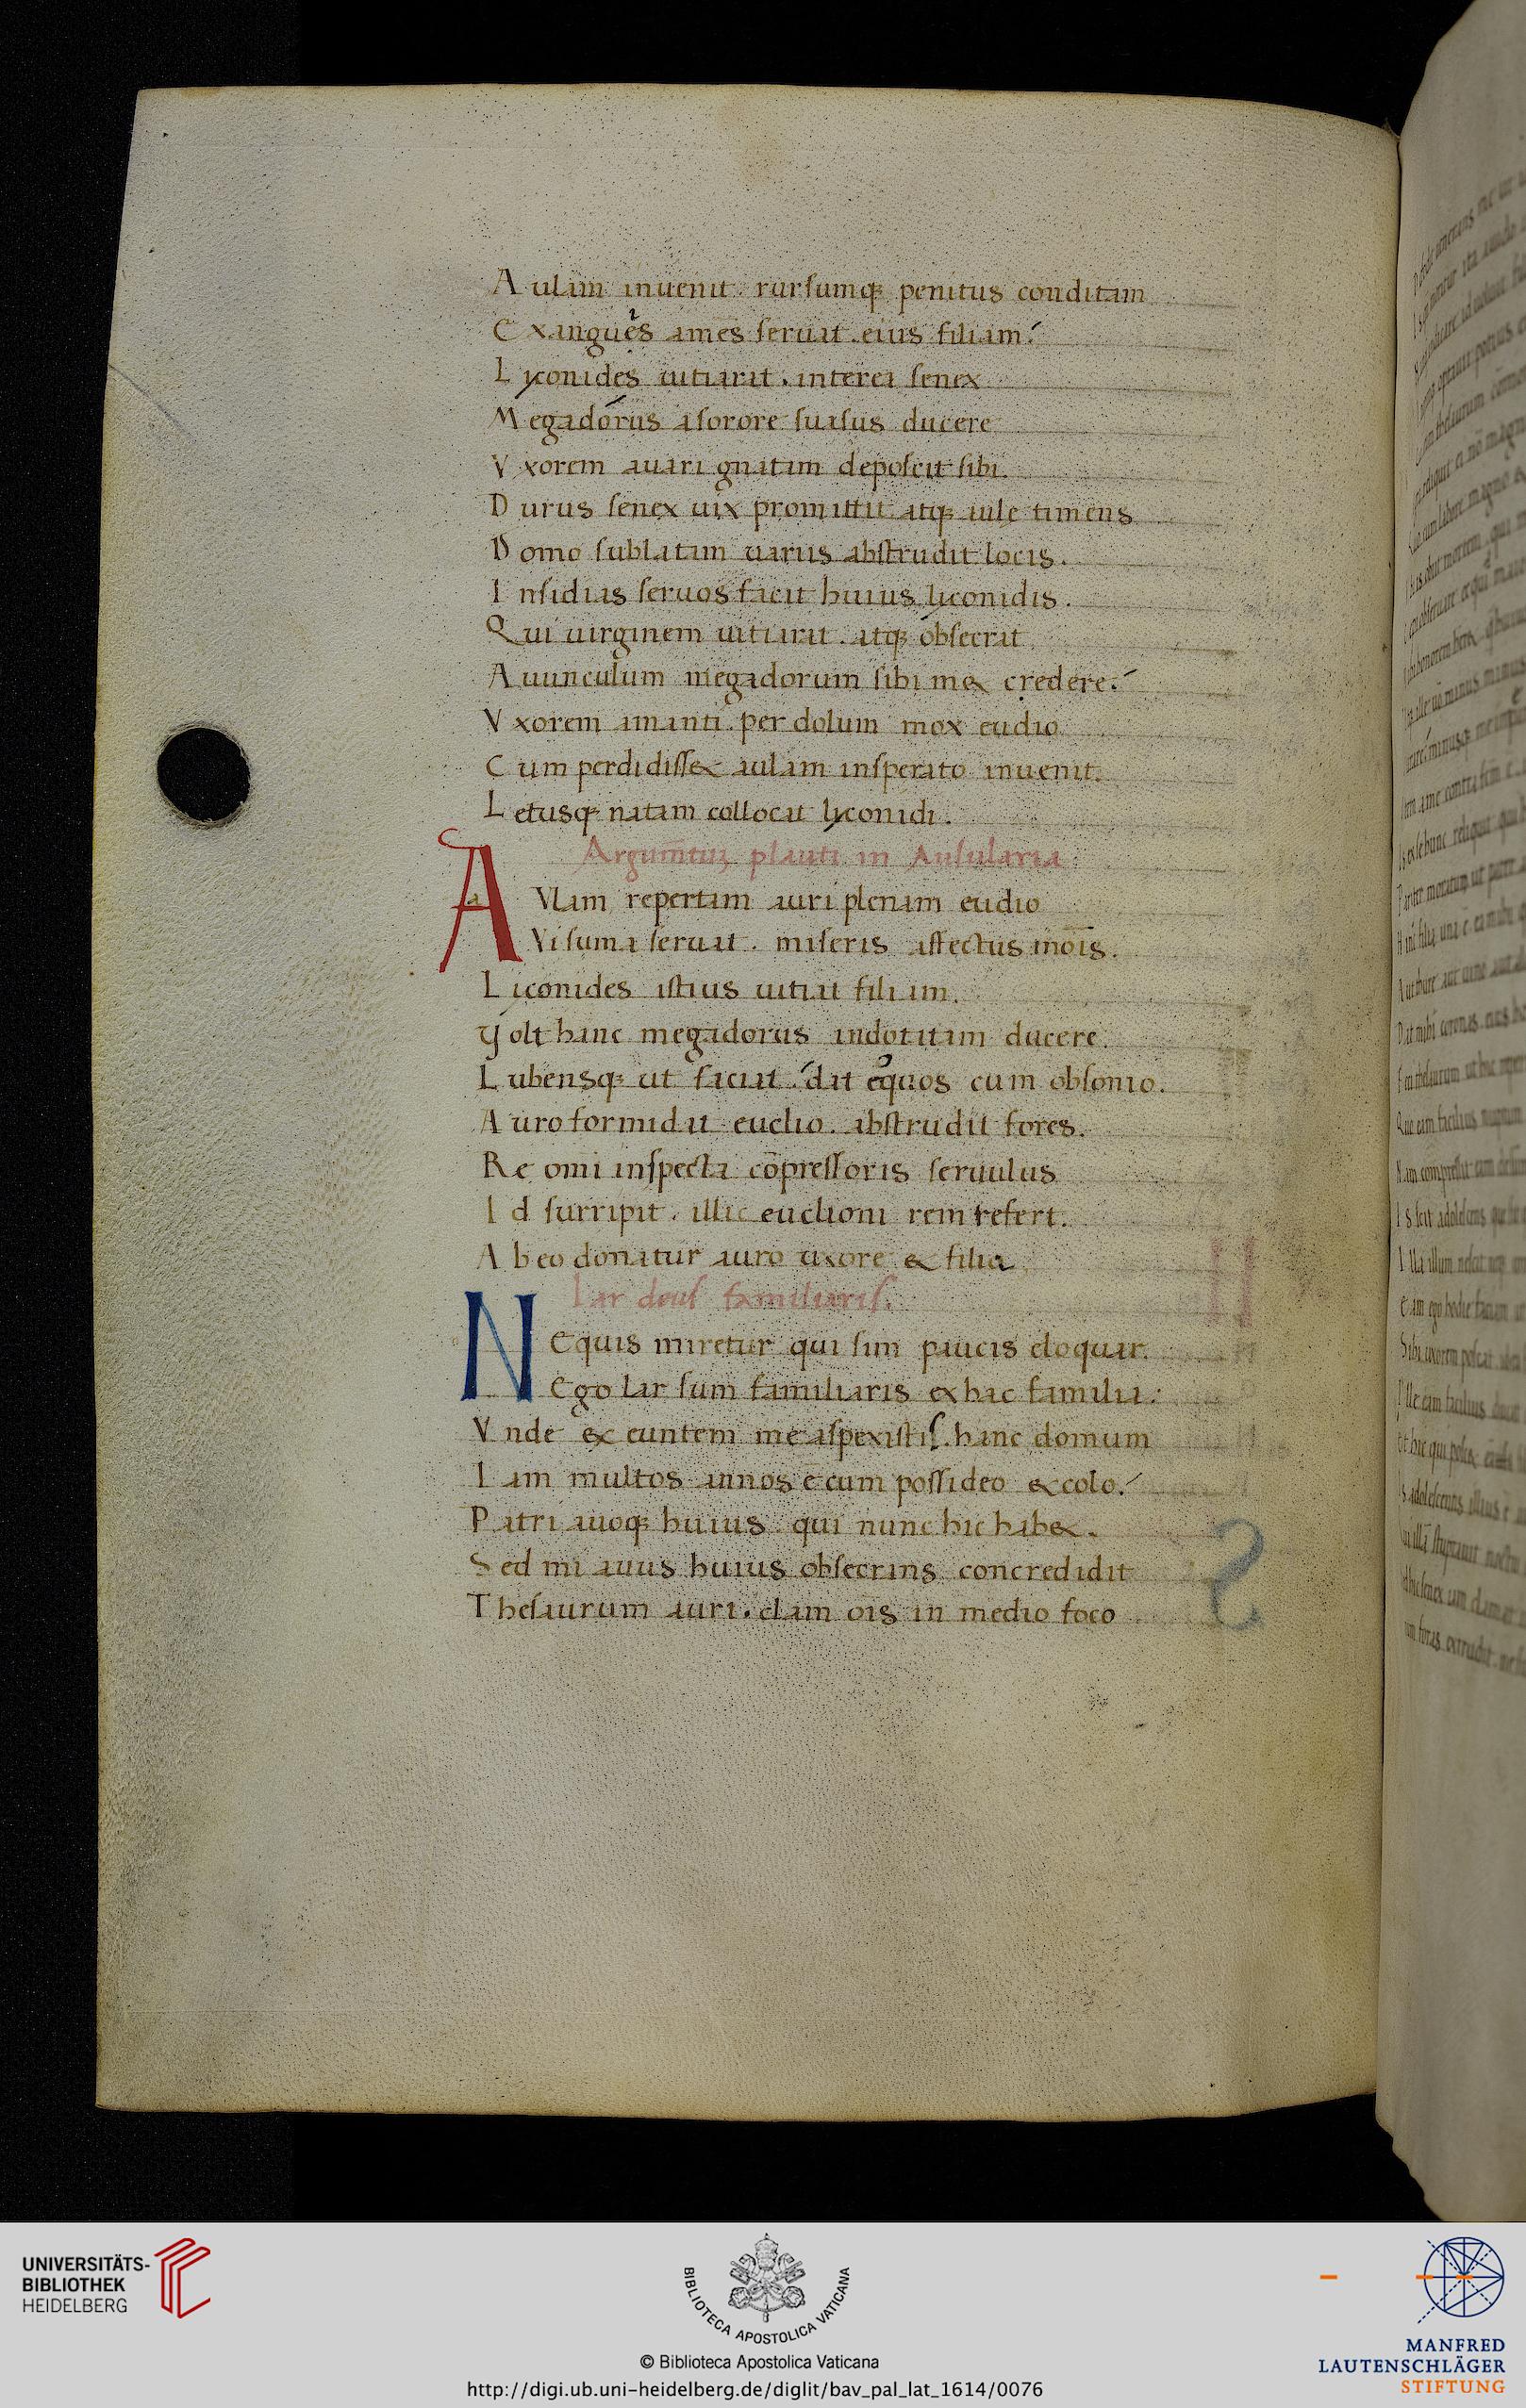 Aulam inuenit. rursumq; penitus conditam
Exanguẽs ames seruat. eius filiam.
Liconides uitiarat. interea senex
Megadorus a sorore suasus ducere
Vxorem auari gnatam deposcit sibi.
Durus senex uix promittit atq; aulę timens
Domo sublatam uariis abstrudit locis.
Insidias seruos facit huius liconidis.
Qui uirginem uitiarat. atq; obsecrat
Auunculum megadorum sibi met credere.
Vxorem amanti. per dolum mox eudio
Cum perdidisset aulam insperato inuenit.
Letusq; natam collocat liconidi.
Argum̄tuʒ plauti in Aulularia
A Vlam repertam auri plenam eudio
Vi suma seruat. miseris affectus mōis.
Liconides istius uitiat filiam.
Volt hanc megadorus indotatam ducere.
Lubensq; ut faciat. dat equos cum obsonio.
Auro formidat euclio. abstrudit fores.
Re omi inspecta cōpressoris seruulus
Id surripit. illic euclioni rem refert.
Ab eo donatur auro uxore et filia
Lar deus familiaris.
N Equis miretur qui sim paucis eloquar.
Ego Lar sum familiaris ex hac familia:
Vnde ex euntem me aspexistis. hanc domum
Iam multos annos ē cum possideo et colo.
Patri auoq; huius qui nunc hic habet.
Sed mi auus huius obsecrans concredidit
Thesaurum auri. clam ois in medio foco
UNIVERSITÄTS-
BIBLIOTHEK
HEIDELBERG
BIBLIOTECA APOSTOLICA VATICANA
© Biblioteca Apostolica Vaticana
http://digi.ub.uni-heidelberg.de/diglit/bav_pal_lat_1614/0076
MANFRED
LAUTENSCHLÄGER
STIFTUNG